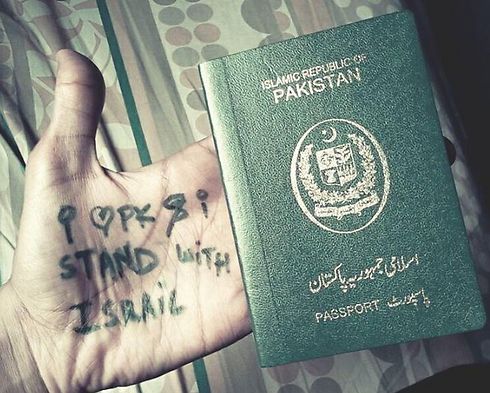 I ♡ PK & i
STAND WiTH
ISRAIL
ISLAMIC REPUBLIC OF
PAKISTAN
اسلامی جمہوریہ پاکستان
PASSPORT پاسپورٹ